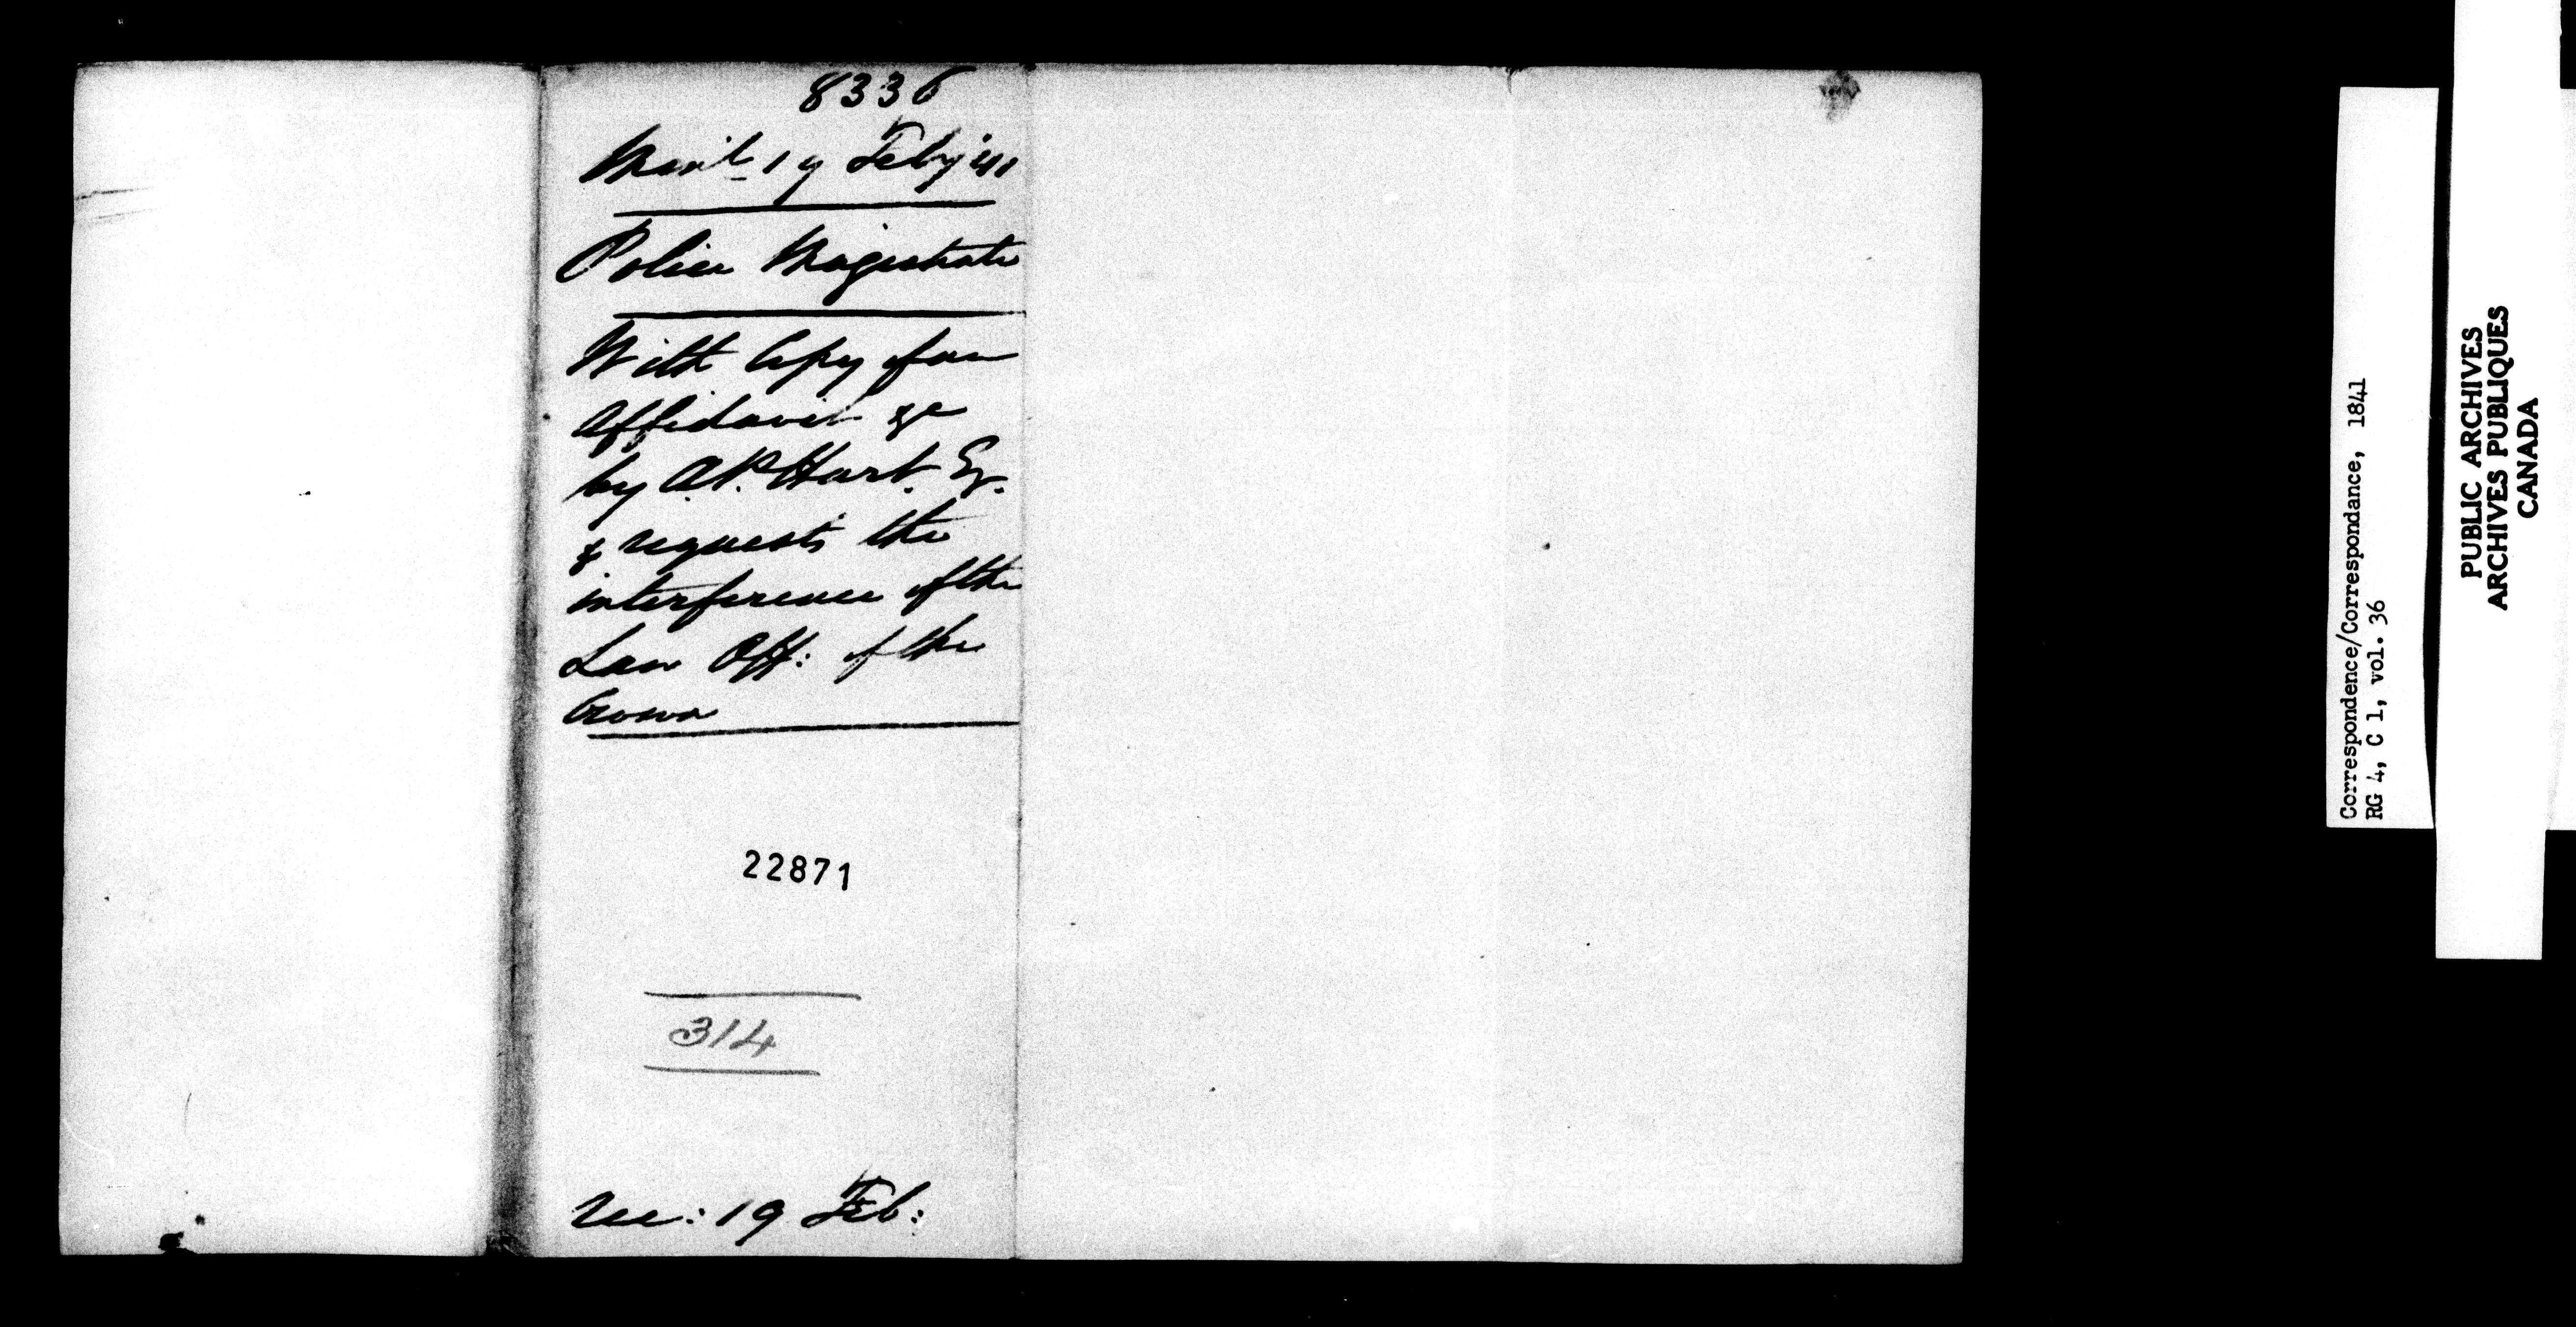 8336
Mont 19 Feby '41
Police Magistrate
With Copy of an
Affidavit &c
by A.P. Hart. Esq.
& requests the
interference of the
Law Off: of the
Crown
22871
314
Rec: 19 Feb:
Correspondence/Correspondance, 1841
RG 4, C 1, vol. 36
PUBLIC ARCHIVES
ARCHIVES PUBLIQUES
CANADA